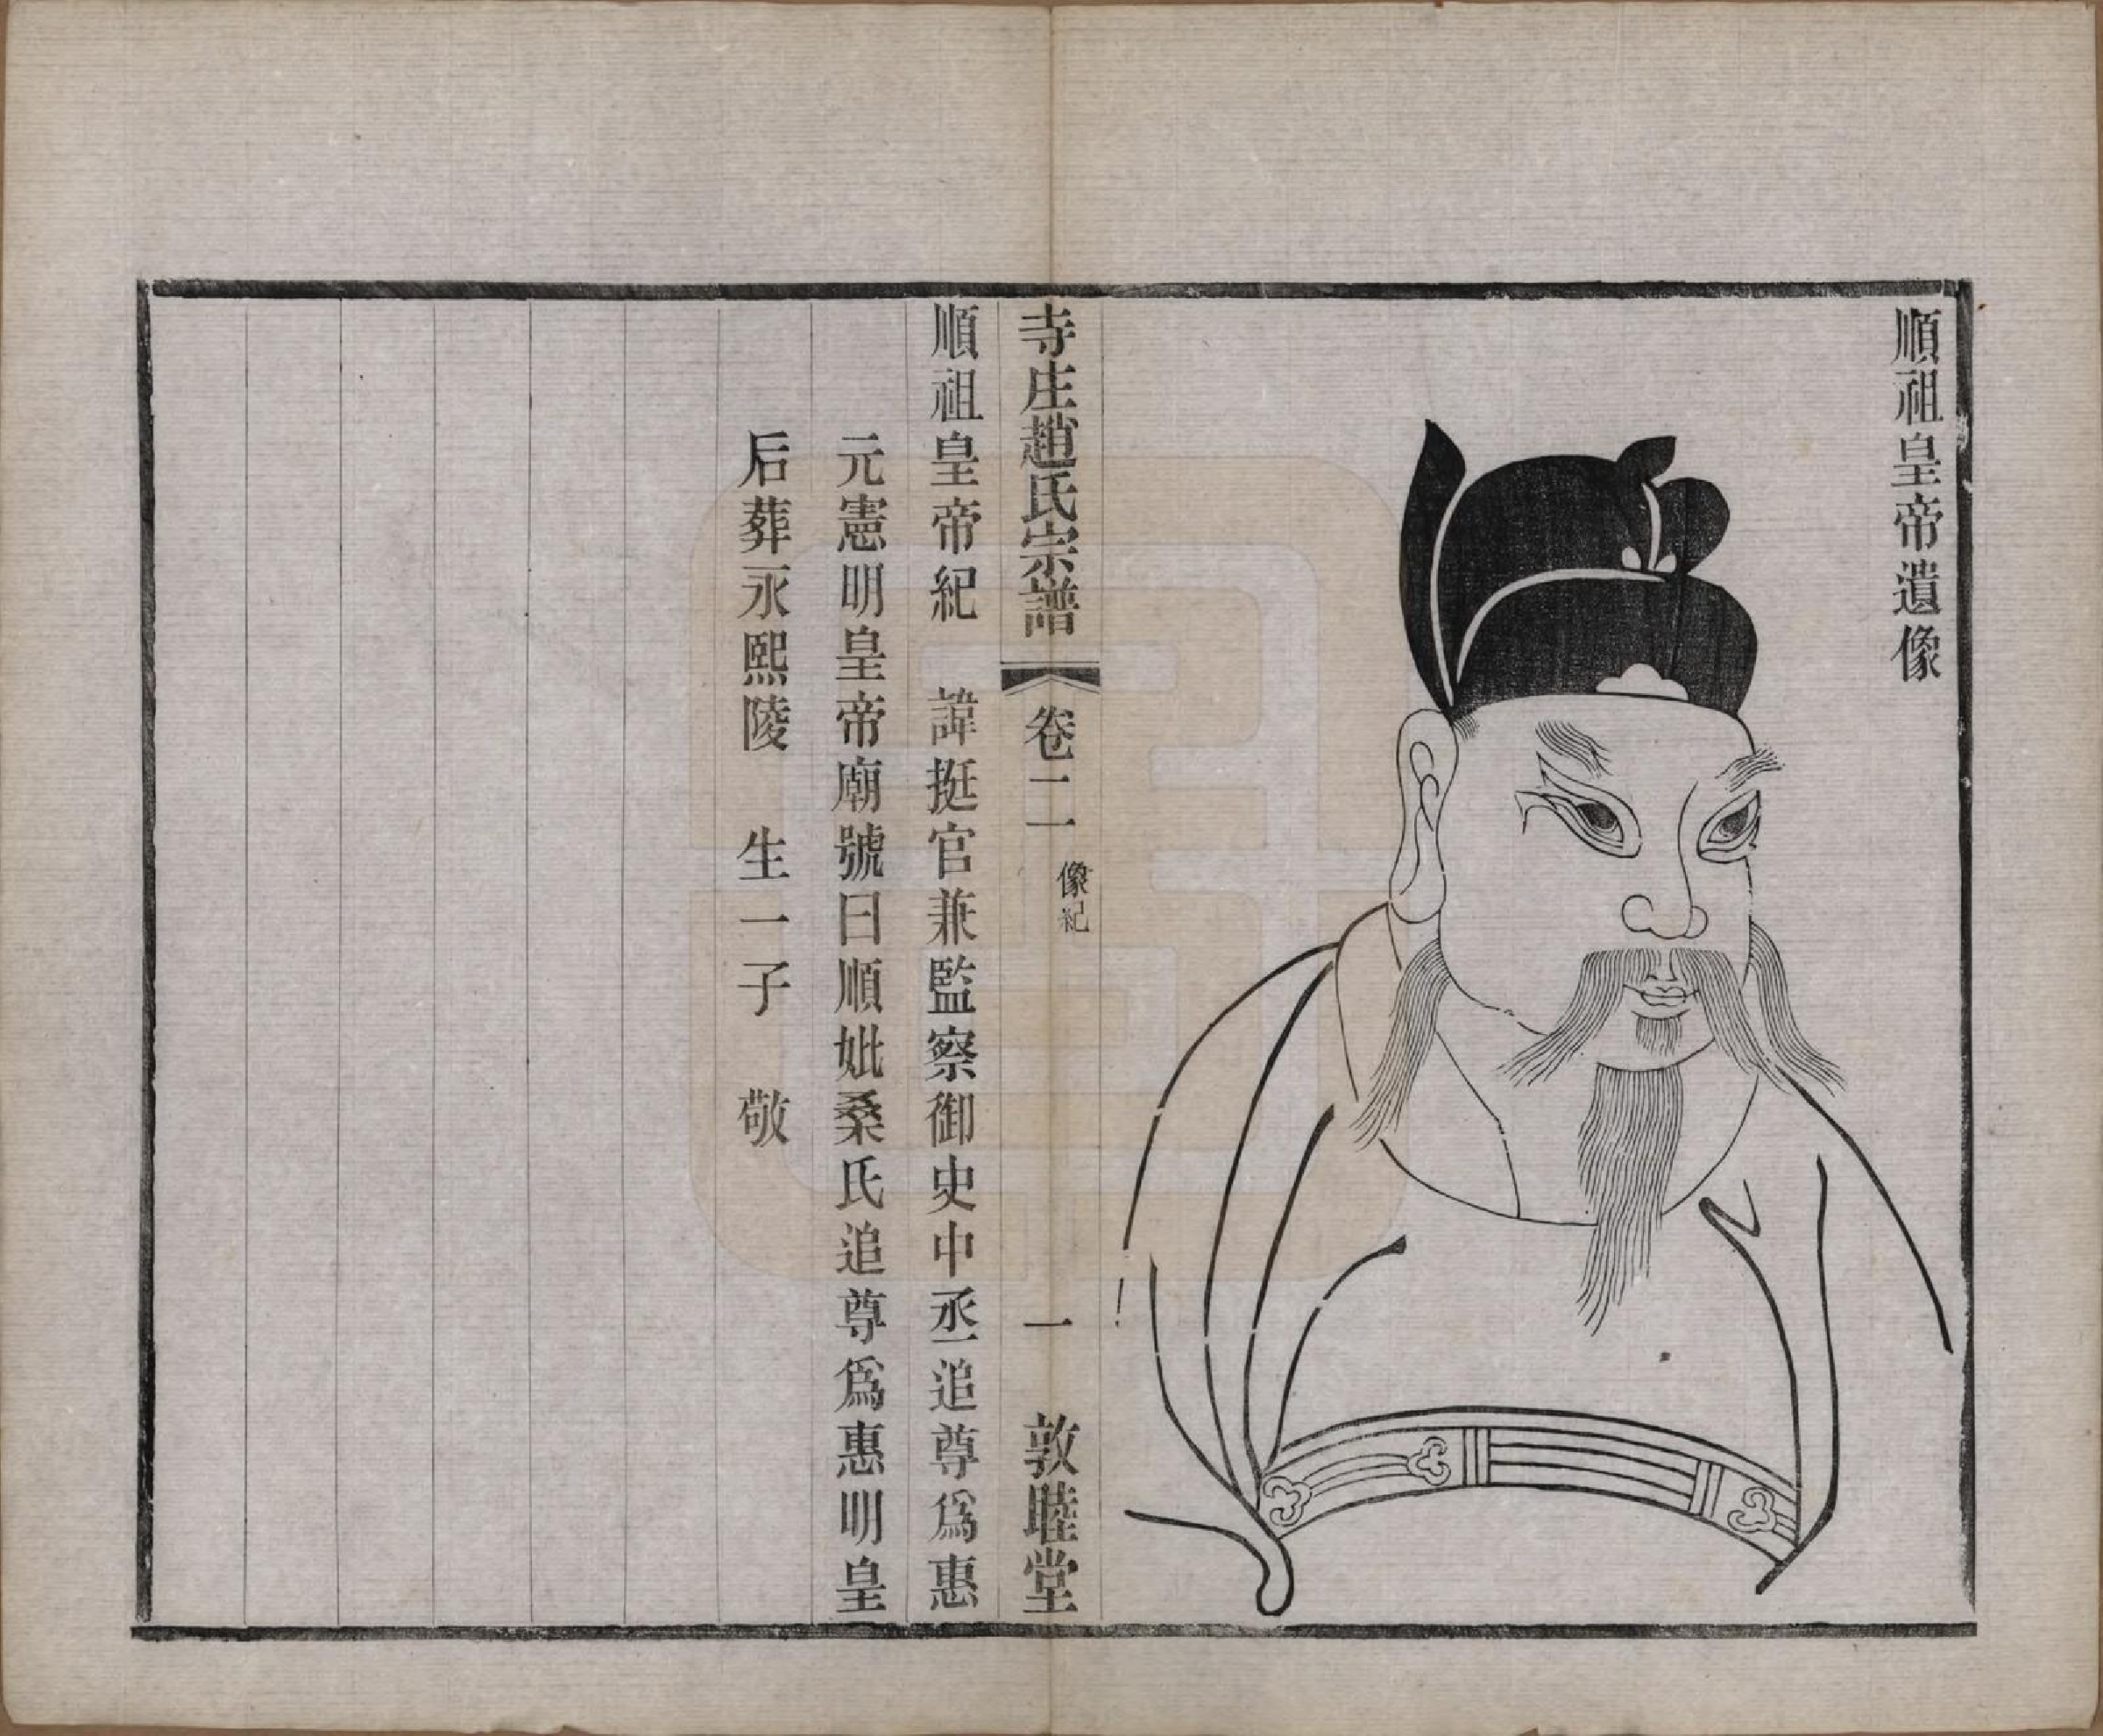 順祖皇帝遺像
寺庄趙氏宗譜 卷二 像紀 一 敦睦堂
順祖皇帝紀 諱挺官兼監察御史中丞追尊爲惠
元憲明皇帝廟號曰順妣桑氏追尊爲惠明皇
后葬永熙陵 生一子 敬